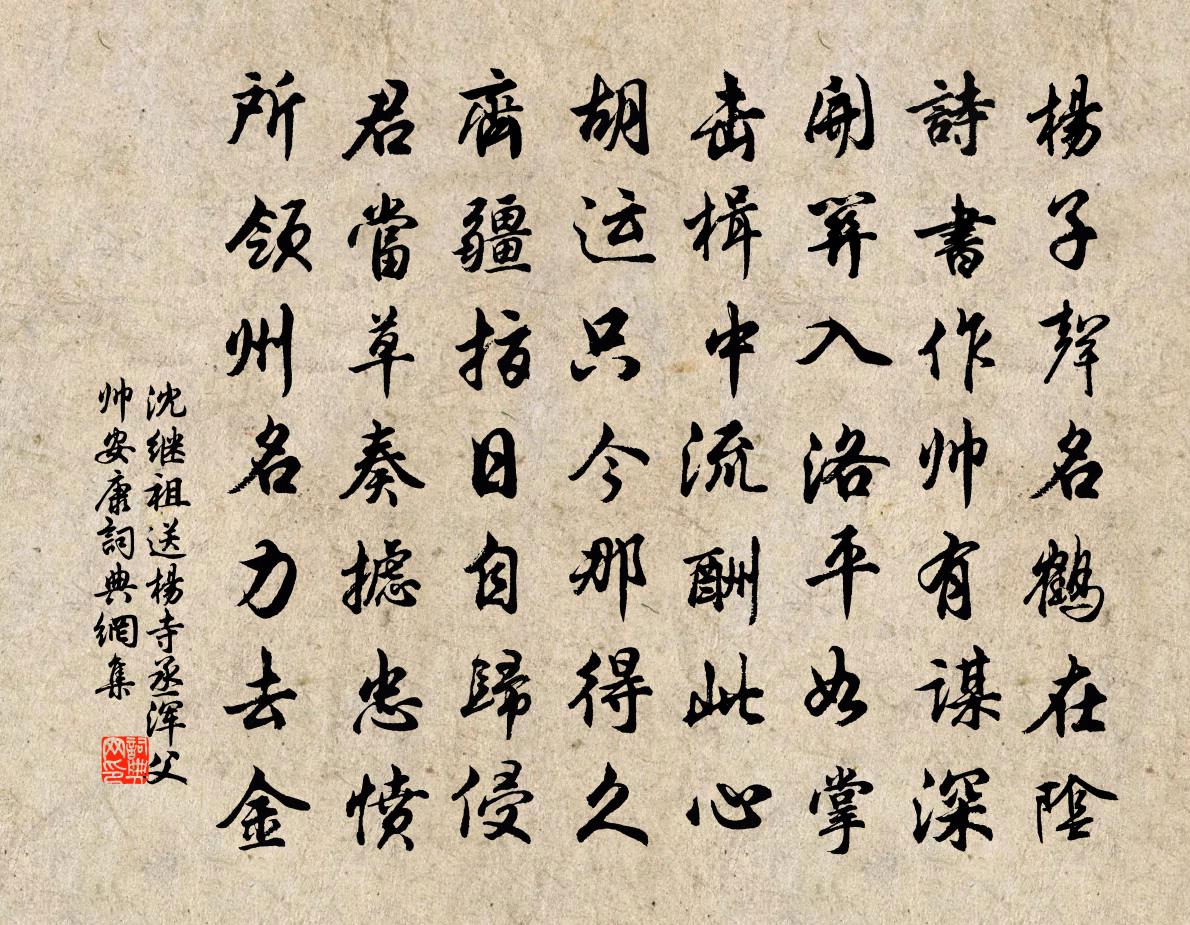 楊子聲名鶴在陰
詩書作帅有謀深
開關入洛平如掌
击楫中流酬此心
胡运只今那得久
齊疆指日自歸侵
君當草奏攄忠憤
所領州名力去金
沈继祖送楊寺丞渾父
帅安康詞典網集
詞典网印